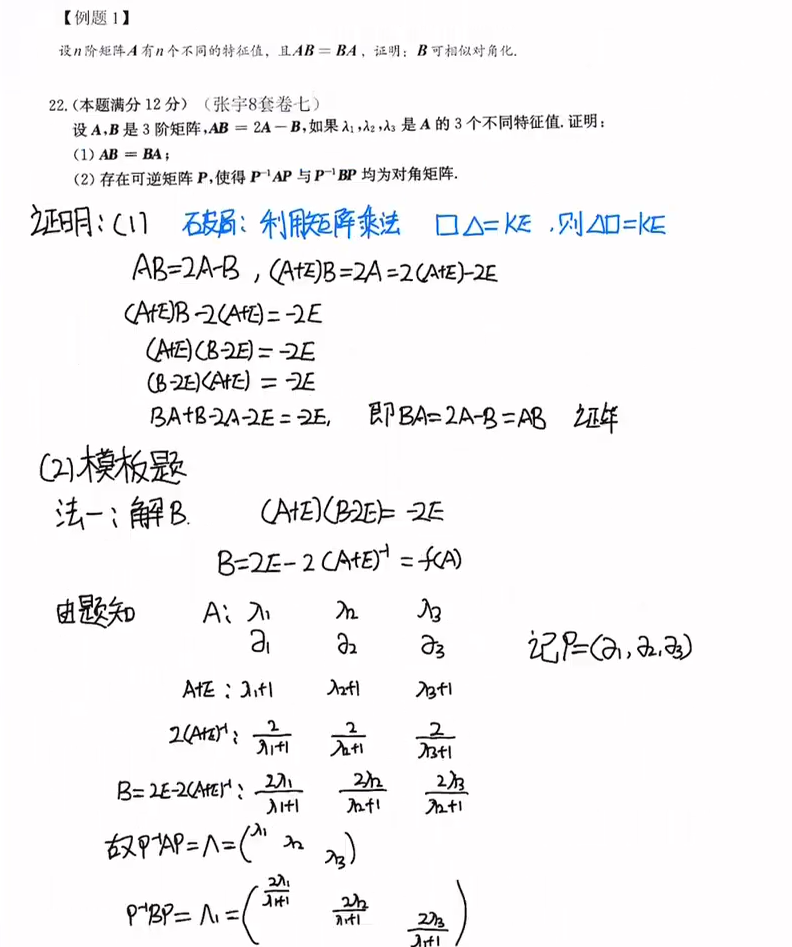 【例题1】
设n阶矩阵A有n个不同的特征值，且AB = BA，证明：B可相似对角化.
22.(本题满分12分)（张宇8套卷七）
设A,B是3阶矩阵,AB = 2A－B,如果λ₁,λ₂,λ₃是A的3个不同特征值.证明:
(1) AB = BA;
(2) 存在可逆矩阵P,使得P⁻¹AP与P⁻¹BP均为对角矩阵.
证明:(1) 破局:利用矩阵乘法 □△=KE,则△□=KE
AB=2A-B,(A+E)B=2A=2(A+E)-2E
(A+E)B-2(A+E)=-2E
(A+E)(B-2E)=-2E
(B-2E)(A+E)=-2E
BA+B-2A-2E=-2E, 即BA=2A-B=AB 证毕
(2)模板题
法一:解B. (A+E)(B-2E)=-2E
B=2E-2(A+E)⁻¹=f(A)
由题知 A: λ₁ λ₂ λ₃
∂₁ ∂₂ ∂₃ 记P=(∂₁,∂₂,∂₃)
A+E: λ₁+1 λ₂+1 λ₃+1
2(A+E)⁻¹: 2/(λ₁+1) 2/(λ₂+1) 2/(λ₃+1)
B=2E-2(A+E)⁻¹: 2λ₁/(λ₁+1) 2λ₂/(λ₂+1) 2λ₃/(λ₂+1)
故P⁻¹AP=Λ=(λ₁ λ₂ λ₃)
P⁻¹BP=Λ₁=(2λ₁/(λ₁+1) 2λ₂/(λ₁+1) 2λ₃/(λ₁+1))